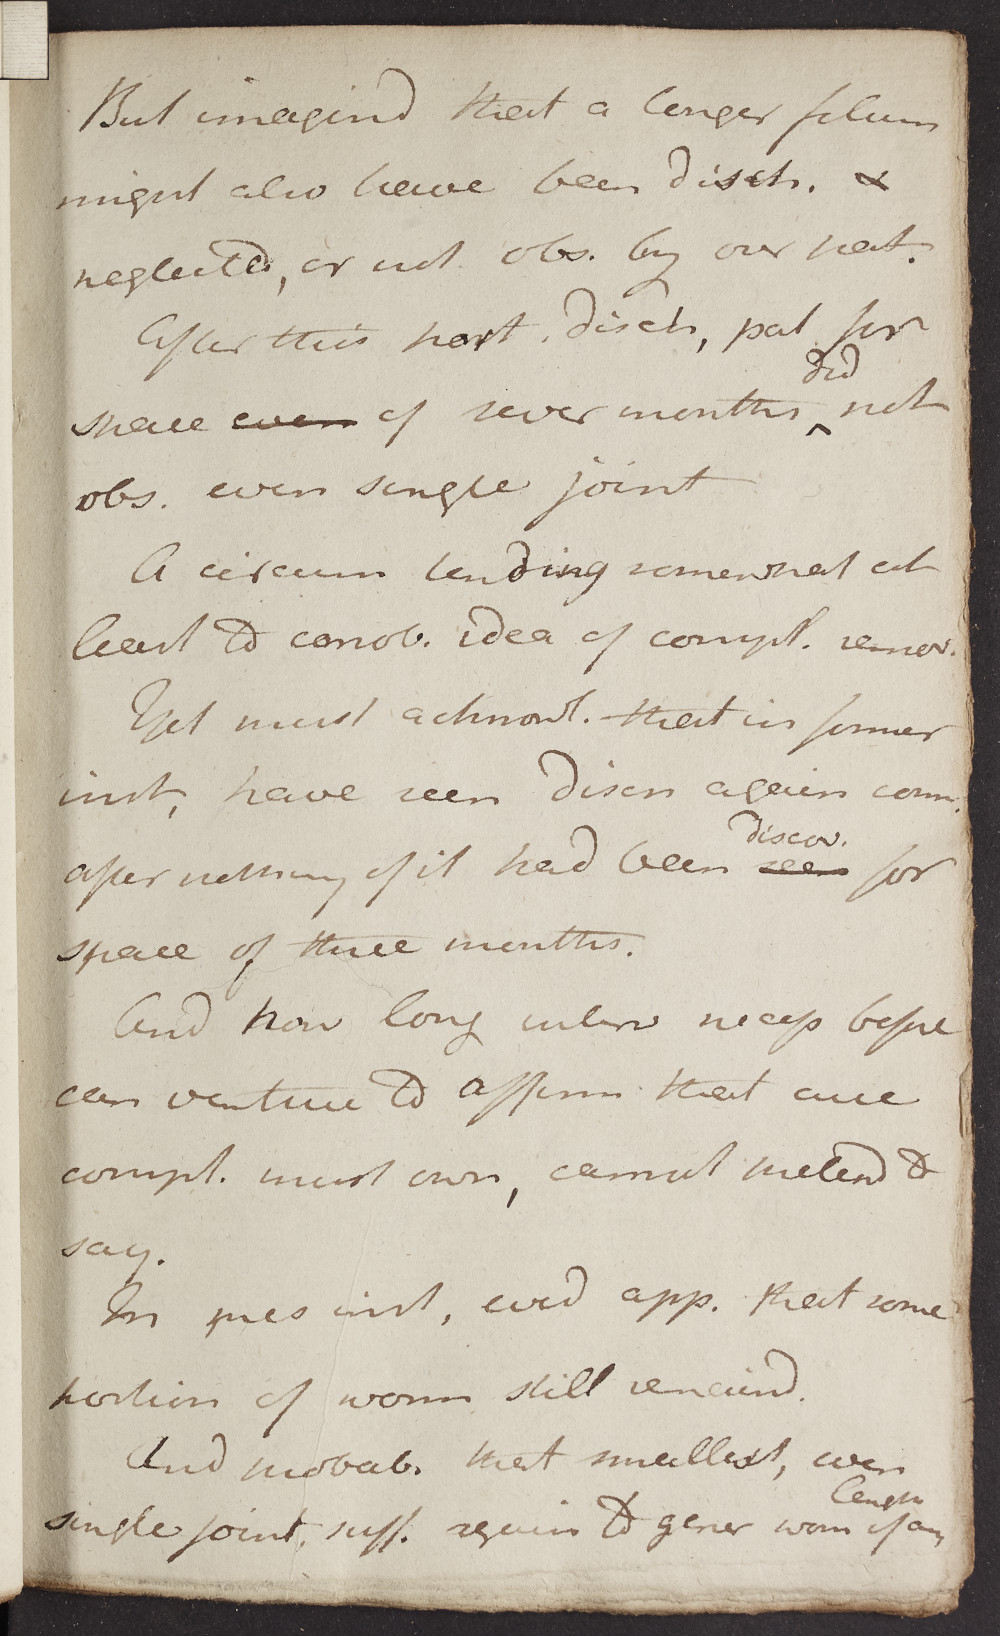 But imagind that a longer filum
might also have been disch. &
neglected, or not obs. by our pat.
After this port. disch, pat for
space even of sever months did not
obs. even single joint
A circum tending somewhat at
least to corrob. idea of compl. remov.
Yet must acknowl. that in former
inst, have seen disch again comm.
after nothing of it had been seen discov. for
space of three months.
And how long interv necess before
can venture to affirm that cure
compl. must own, cannot pretend to
say.
In pres inst, evid app. that some
portion of worm still remaind.
And probab. that smallest, even
single joint, suff. again to gener worm of any length